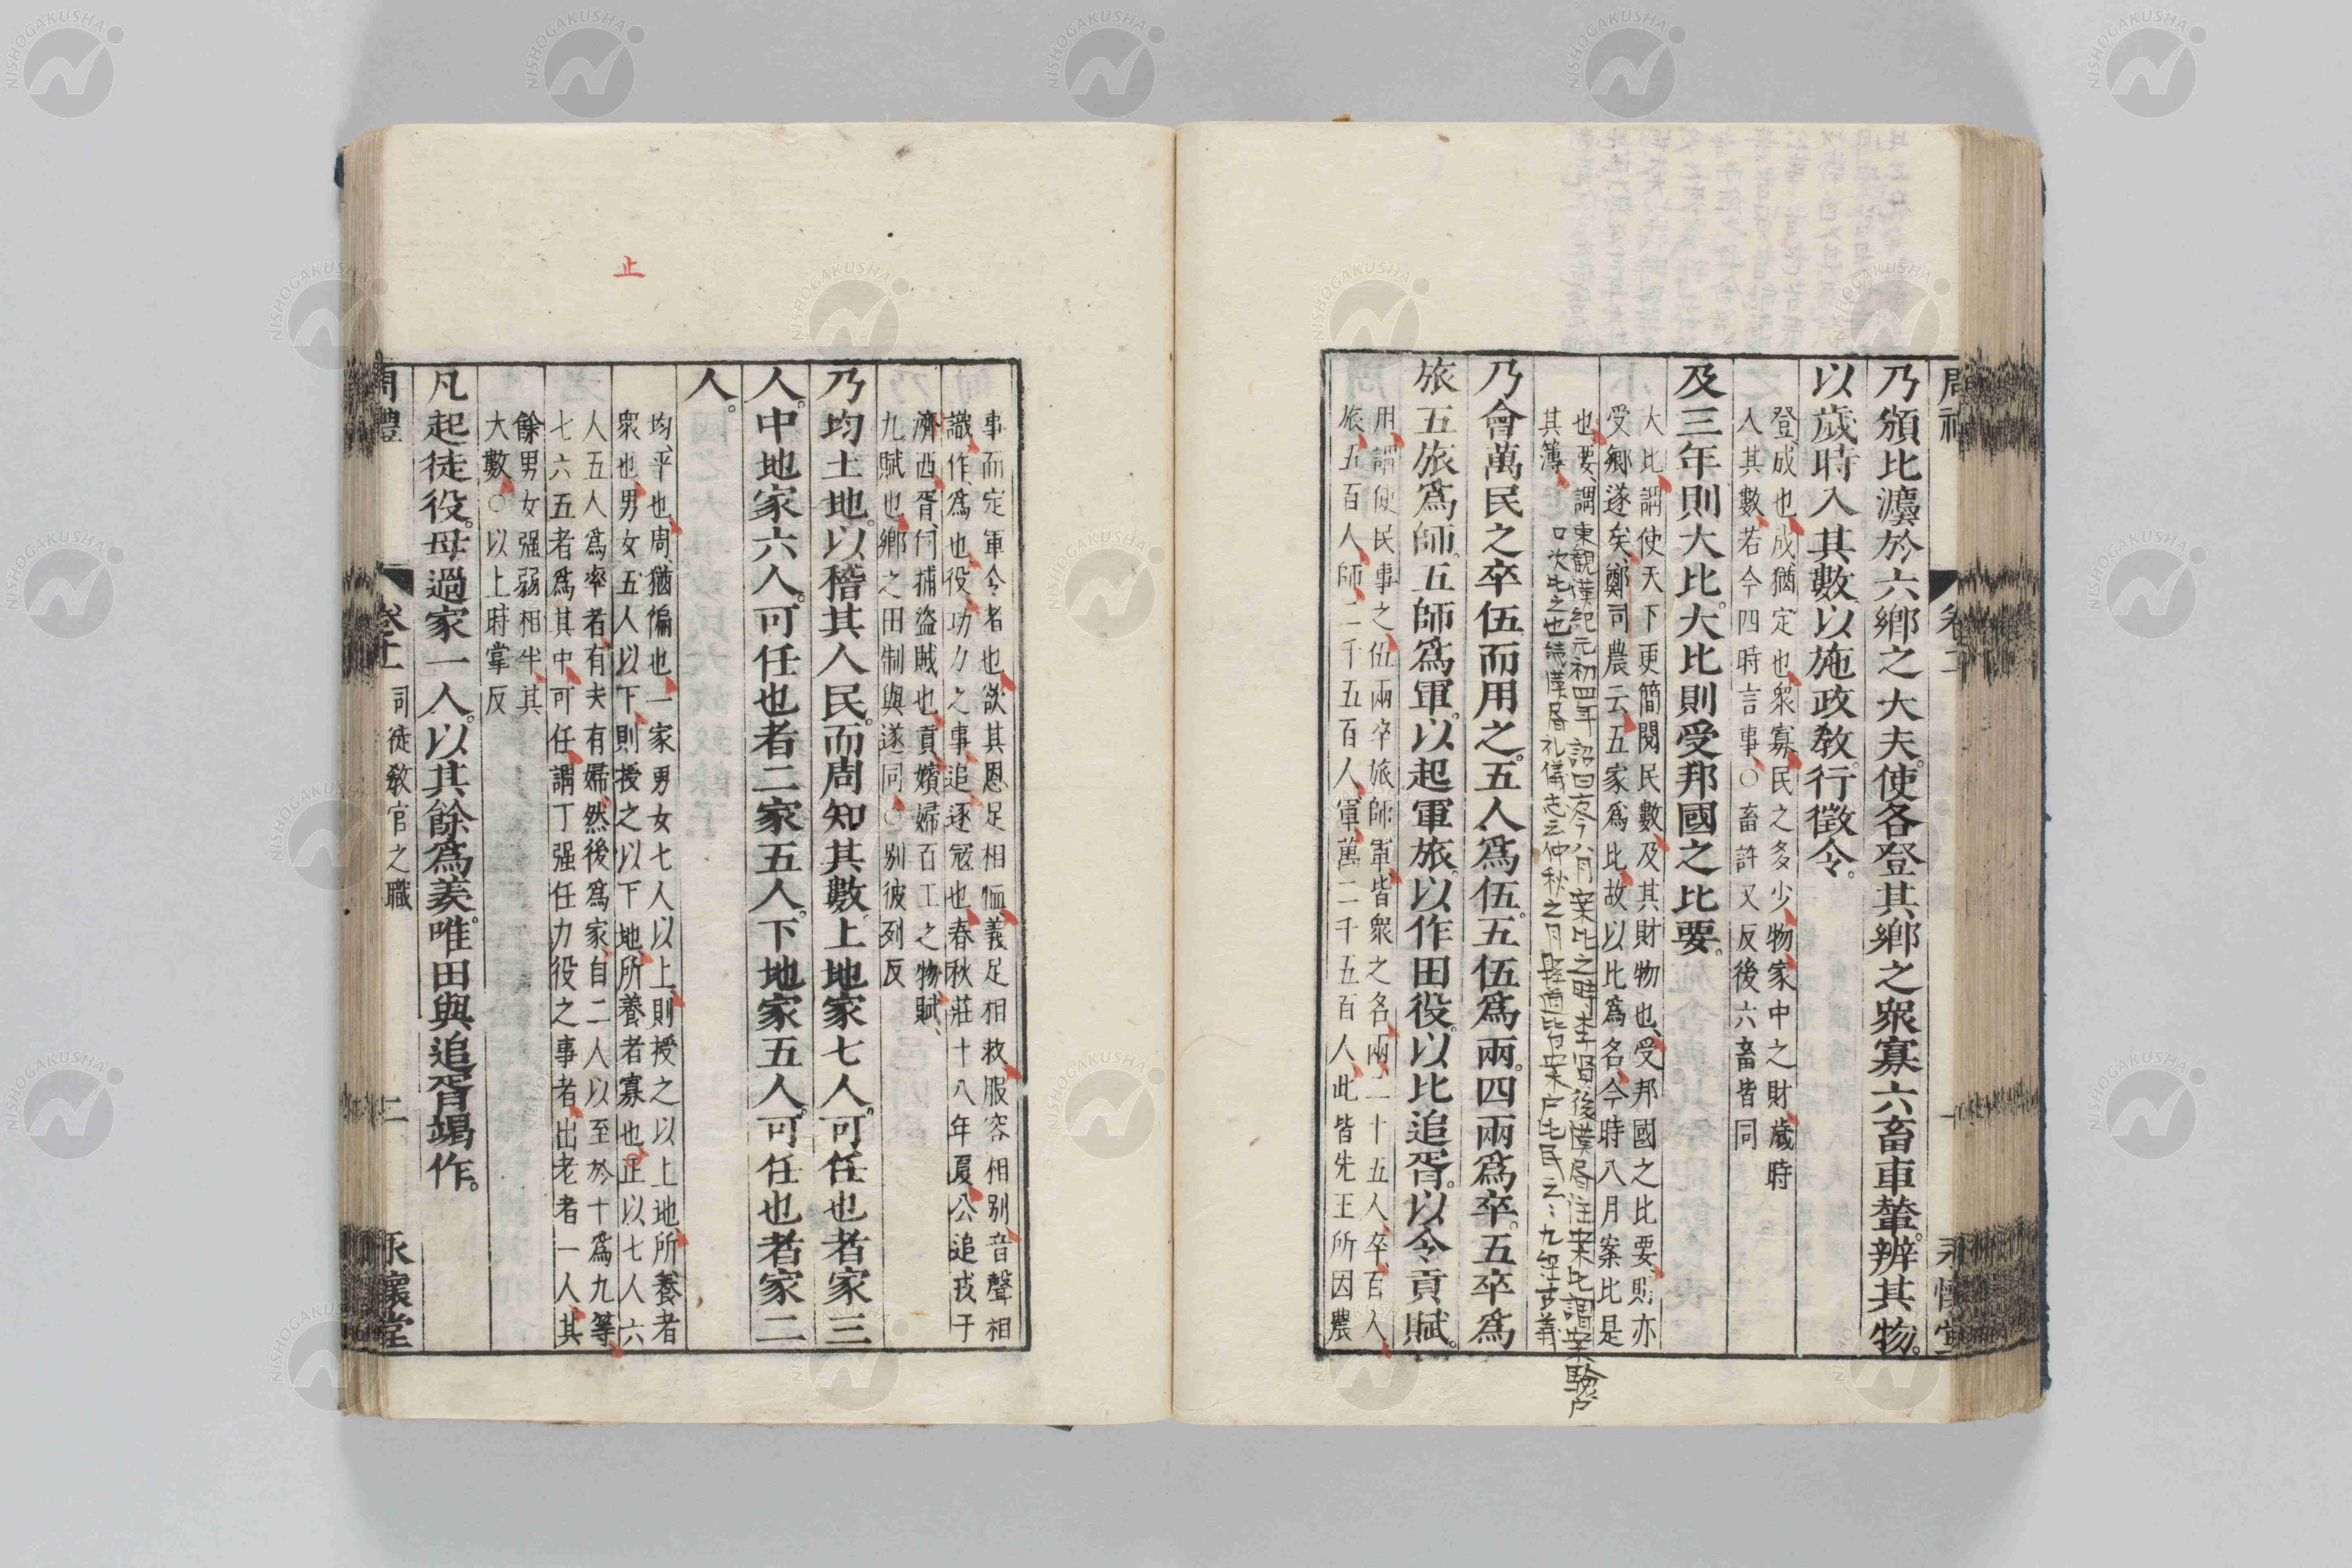 乃頒比灋於六鄉之大夫。使各登其鄉之衆寡六畜車輦。辨其物。
以歲時入其數。以施政敎。行徵令。
登、成也成、猶定也衆寡、民之多少物、家中之財歲時
人其數若今四時言事○畜許又反後六畜皆同
及三年則大比。大比則受邦國之比要。
大比、謂使天下更簡閱民數及其財物也受邦國之比要、則亦
受鄉遂矣鄭司農云五家爲比故以比爲名今時八月案比是
也要謂
其簿
乃會萬民之卒伍而用之。五人爲伍。五伍爲兩。四兩爲卒。五卒爲
旅五旅爲師。五師爲軍。以起軍旅。以作田役。以比追胥。以令貢賦。
用、謂使民事之伍兩卒旅師軍皆衆之名兩二十五人卒百人
旅五百人師二千五百人軍萬二千五百人此皆先王所因農
周禮
卷二
永懷堂
事而定軍令者也欲其恩足相恤義足相救服容相別音聲相
識作爲也役功力之事追逐寇也春秋莊十八年夏公追戎于
濟西胥伺捕盜賊也貢嬪婦百工之物賦、
九賦也鄉之田制與遂同○別彼列反
乃均土地。以稽其人民。而周知其數。上地家七人。可任也者家三
人。中地家六人。可任也者二家五人。下地家五人。可任也者家二
人。
均、平也周猶徧也一家男女七人以上則授之以上地所養者
衆也男女五人以下則授之以下地所養者寡也正以七人六
人五人爲率者有夫有婦然後爲家自二人以至於十爲九等
七六五者爲其中可任謂丁强任力役之事者出老者一人其
餘男女强弱相半其
大數○以上時掌反
凡起徒役。毋過家一人。以其餘爲羡。唯田與追胥竭作。
周禮
司徒敎官之職
二
永懷堂
止
NISHOGAKUSHA